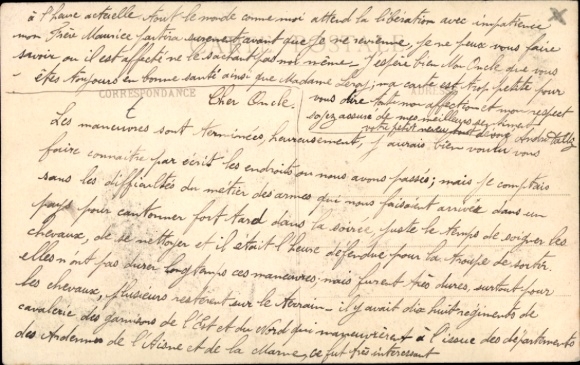 à l'heure actuelle tout le monde comme moi attend la libération avec impatience
mon Frère Maurice partira surement avant que je ne revienne, je ne peux vous faire
savoir, ou il est affecté ne le sachant pas moi même. J'espère bien Mon Oncle que vous
êtes toujours en bonne santé ainsi que Madame ma carte est trop petite pour
vous dire toute mon affection et mon respect
soyez assuré de mes meilleurs
votre petit neveu tout dévoué André
CORRESPONDANCE
Cher Oncle.
Les manœuvres sont terminées, heureusement, j'aurais bien voulu vous
faire connaître par écrit les endroits ou nous avons passés; mais je comptais
sans les difficultés du métier des armes qui nous faisaient arriver dans un
pays pour cantonner fort tard dans la soirée, juste le temps de soigner les
chevaux, de se nettoyer et il était l'heure défendue pour la troupe de sortir.
elles n'ont pas durer longtemps ces manœuvres; mais furent très dures, surtout pour
les chevaux, plusieurs restèrent sur le terrain - il y avait dix huit régiments de
cavalerie des garnisons de l'Est et du Nord qui manœuvrèrent à l'issue des départements
des Ardennes de l'Aisne et de la Marne, ce fut très intéressant